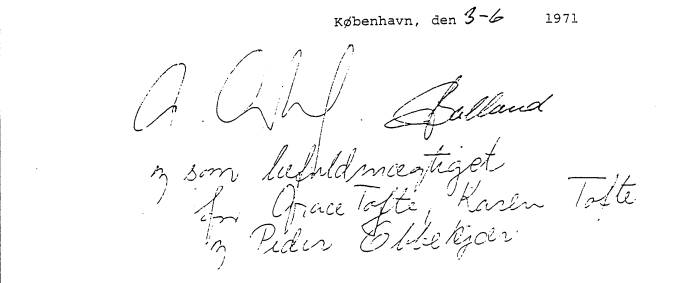 København, den 3-6 1971
Balland
og som befuldmægtiget
for Grace Tofte, Karen Tofte
og Peder Ebbekjær